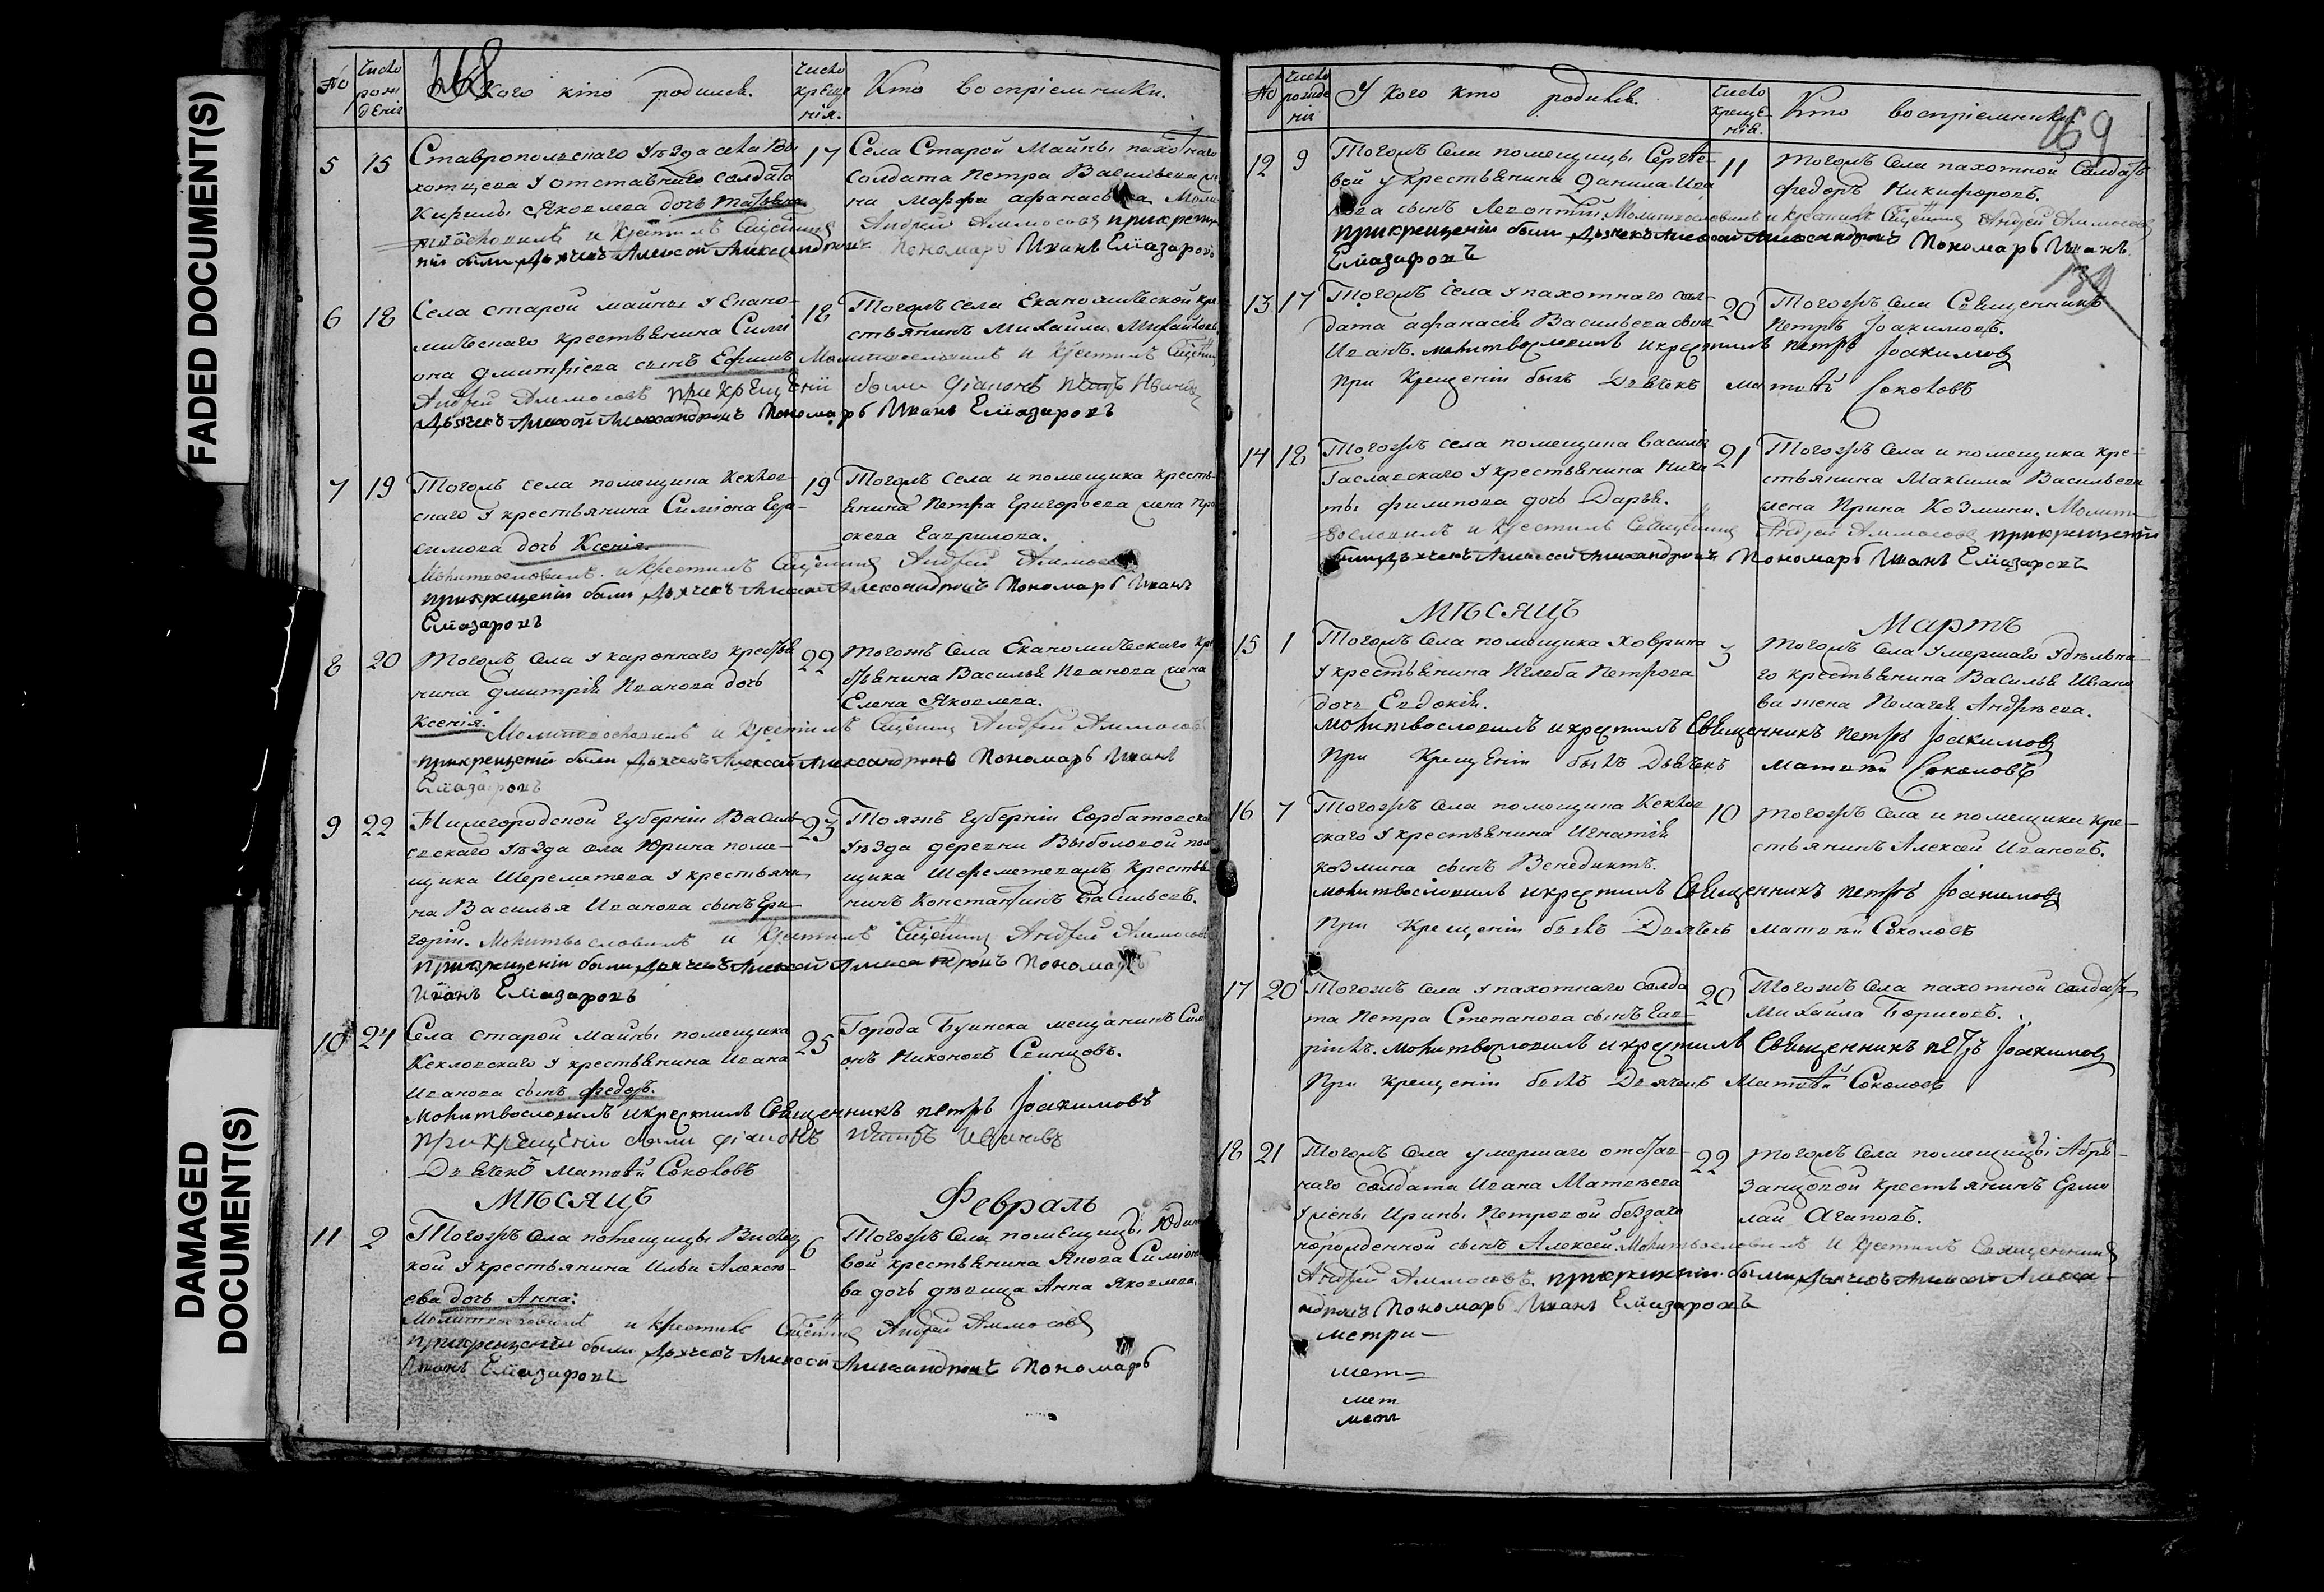 FADED DOCUMENT(S)
DAMAGED
DOCUMENT(S)
168
№
Число рождения
У Кого кто родился.
Число крещения.
Кто восприемники.
5 15
Ставропольскаго Уѣзда села
у отставнаго солдата
Кирилы Яковлева дочь
и крестилъ
были Дьячекъ Алексей Александровъ
17
Села Старой Майны пахотнаго
солдата Петра Васильева
на Марфа Афанасьева
Андрей Аммосовъ при крещ
Пономарь Иванъ Елиазаровъ
6 18
Села старой майны у Екано-
мическаго крестьянина Сими
она Дмитріева сынъ Ефимъ Молитвословилъ и крестилъ
Андрей Аммосовъ при крещеніи были діаконъ Петръ
Дьячекъ Алексей Александровъ Пономарь Иванъ Елиазаровъ
18
Тогожъ села Еканомической кре
стьянинъ Михайла Михайловъ
7 19
Тогожъ села помещика Кекхов-
скаго у крестьянина Симиона Гера-
симова дочь Ксенія.
Молитвословилъ и крестилъ Андрей Аммосовъ
при крещеніи были Дьячекъ Алексей Александровъ Пономарь Иванъ
Елиазаровъ
19
Тогожъ села и помещика кресть-
янина Петра Григорьева жена
Гаврилова.
8 20
Тогожъ села у каронаго крестья
нина Дмитрія Иванова дочь
Ксенія. Молитвословилъ и крестилъ Андрей Аммосовъ
при крещеніи были Дьячекъ Алексей Александровъ Пономарь Иванъ
Елиазаровъ
22
Тогожъ села Еканомическаго кре
стьянина Василья Иванова жена
Елена Яковлева.
9 22
Нижегородской Губерніи Василь-
севскаго Уѣзда села Юрина поме-
щика Шереметева у крестьяни
на Василья Иванова сынъ Гри-
горій. Молитвословилъ и крестилъ Андрей Аммосовъ
при крещеніи были Дьячекъ Алексей Александровъ Пономарь
Иванъ Елиазаровъ
23
Тояжъ губерніи Горбатовска
Уѣзда деревни Выболовой пом
щика Шереметева крестья
нинъ Константинъ Васильевъ.
10 24
Села старой майны помещика
Кекловскаго у крестьянина Ивана
Иванова сынъ Федоръ.
Молитвословилъ и крестилъ Священникъ Петръ Іоакимовъ
при крещеніи были діаконъ Петръ Ивановъ
Дьячекъ Матвей Соколовъ
25
Города Буинска мещанинъ Сим
онъ Никоновъ Свинцовъ.
Мѣсяцъ Февраль
11 2
Тогожъ села помещицы
кой у крестьянина Ильи Алексе-
ева дочь Анна:
Молитвословилъ и крестилъ Андрей Аммосовъ
при крещеніи были Дьячекъ Алексей Александровъ Пономарь
Иванъ Елиазаровъ
6
Тогожъ села помещицы Юдин
вой крестьянина Якова Симіоно
ва дочь девица Анна Яковлева.
169
139
№
Число рождения
У Кого кто родился.
Число крещения.
Кто восприемники.
12 9
Тогожъ села помещицы Сергее-
вой у крестьянина Данила Ива
нова сынъ Леонтій Молитвословилъ и крестилъ Андрей Аммосовъ
при крещеніи были Дьячекъ Алексей Александровъ Пономарь Иванъ
Елиазаровъ
11
Тогожъ села пахотной солдатъ
Федоръ Никифоровъ.
13 17
Тогожъ села у пахотнаго сол-
дата Афанасія Васильева сынъ
Иванъ. Молитвословилъ и крестилъ Петръ Іоакимовъ
При крещеніи былъ Дьячекъ Матвей Соколовъ
20
Тогожъ села Священникъ
Петръ Іоакимовъ.
14 18
Тогожъ села помещика Василья
у крестьянина Ники
ты Филипова дочь Дарья.
вословилъ и крестилъ Священникъ Андрей Аммосовъ при крещеніи
были Дьячекъ Алексей Александровъ Пономарь Иванъ Елиазаровъ
21
Тогожъ села и помещика кре-
стьянина Максима Васильева
жена Ирина Козмина. Молит
Мѣсяцъ Мартъ
15 1
Тогожъ села помещика Ховрина
у крестьянина Иглеба Петрова
дочь Евдокія.
Молитвословилъ и крестилъ Священникъ Петръ Іоакимовъ
При крещеніи былъ Дьячекъ Матвей Соколовъ
3
Тогожъ села умершаго удѣльна-
го крестьянина Василья Ивано
ва жена Пелагея Андреева.
16 7
Тогожъ села помещика Кекхов
скаго у крестьянина Игнатія
Козмина сынъ Венедиктъ.
Молитвословилъ и крестилъ Священникъ Петръ Іоакимовъ
При крещеніи былъ Дьячекъ Матвей Соколовъ
10
Тогожъ села и помещика кре-
стьянинъ Алексей Ивановъ.
17 20
Тогожъ села у пахотнаго солда
та Петра Степанова сынъ Гав-
рилъ. Молитвословилъ и крестилъ Священникъ Петръ Іоакимовъ
При крещеніи былъ Дьячекъ Матвей Соколовъ
20
Тогожъ села пахотной солдатъ
Михайла Борисовъ.
18 21
Тогожъ села умершаго отстав-
наго солдата Ивана Матвеева
у жены Ирины Петровой беззако
норожденной сынъ Алексей. Молитвословилъ и крестилъ Священникъ
Андрей Аммосовъ. при крещеніи были Дьячекъ Алексей Алекса-
ндровъ Пономарь Иванъ Елиазаровъ
22
Тогожъ села помещицы Абра-
занцовой крестьянинъ Ермо
лай Агаповъ.
метри-
мет=
мет
мет